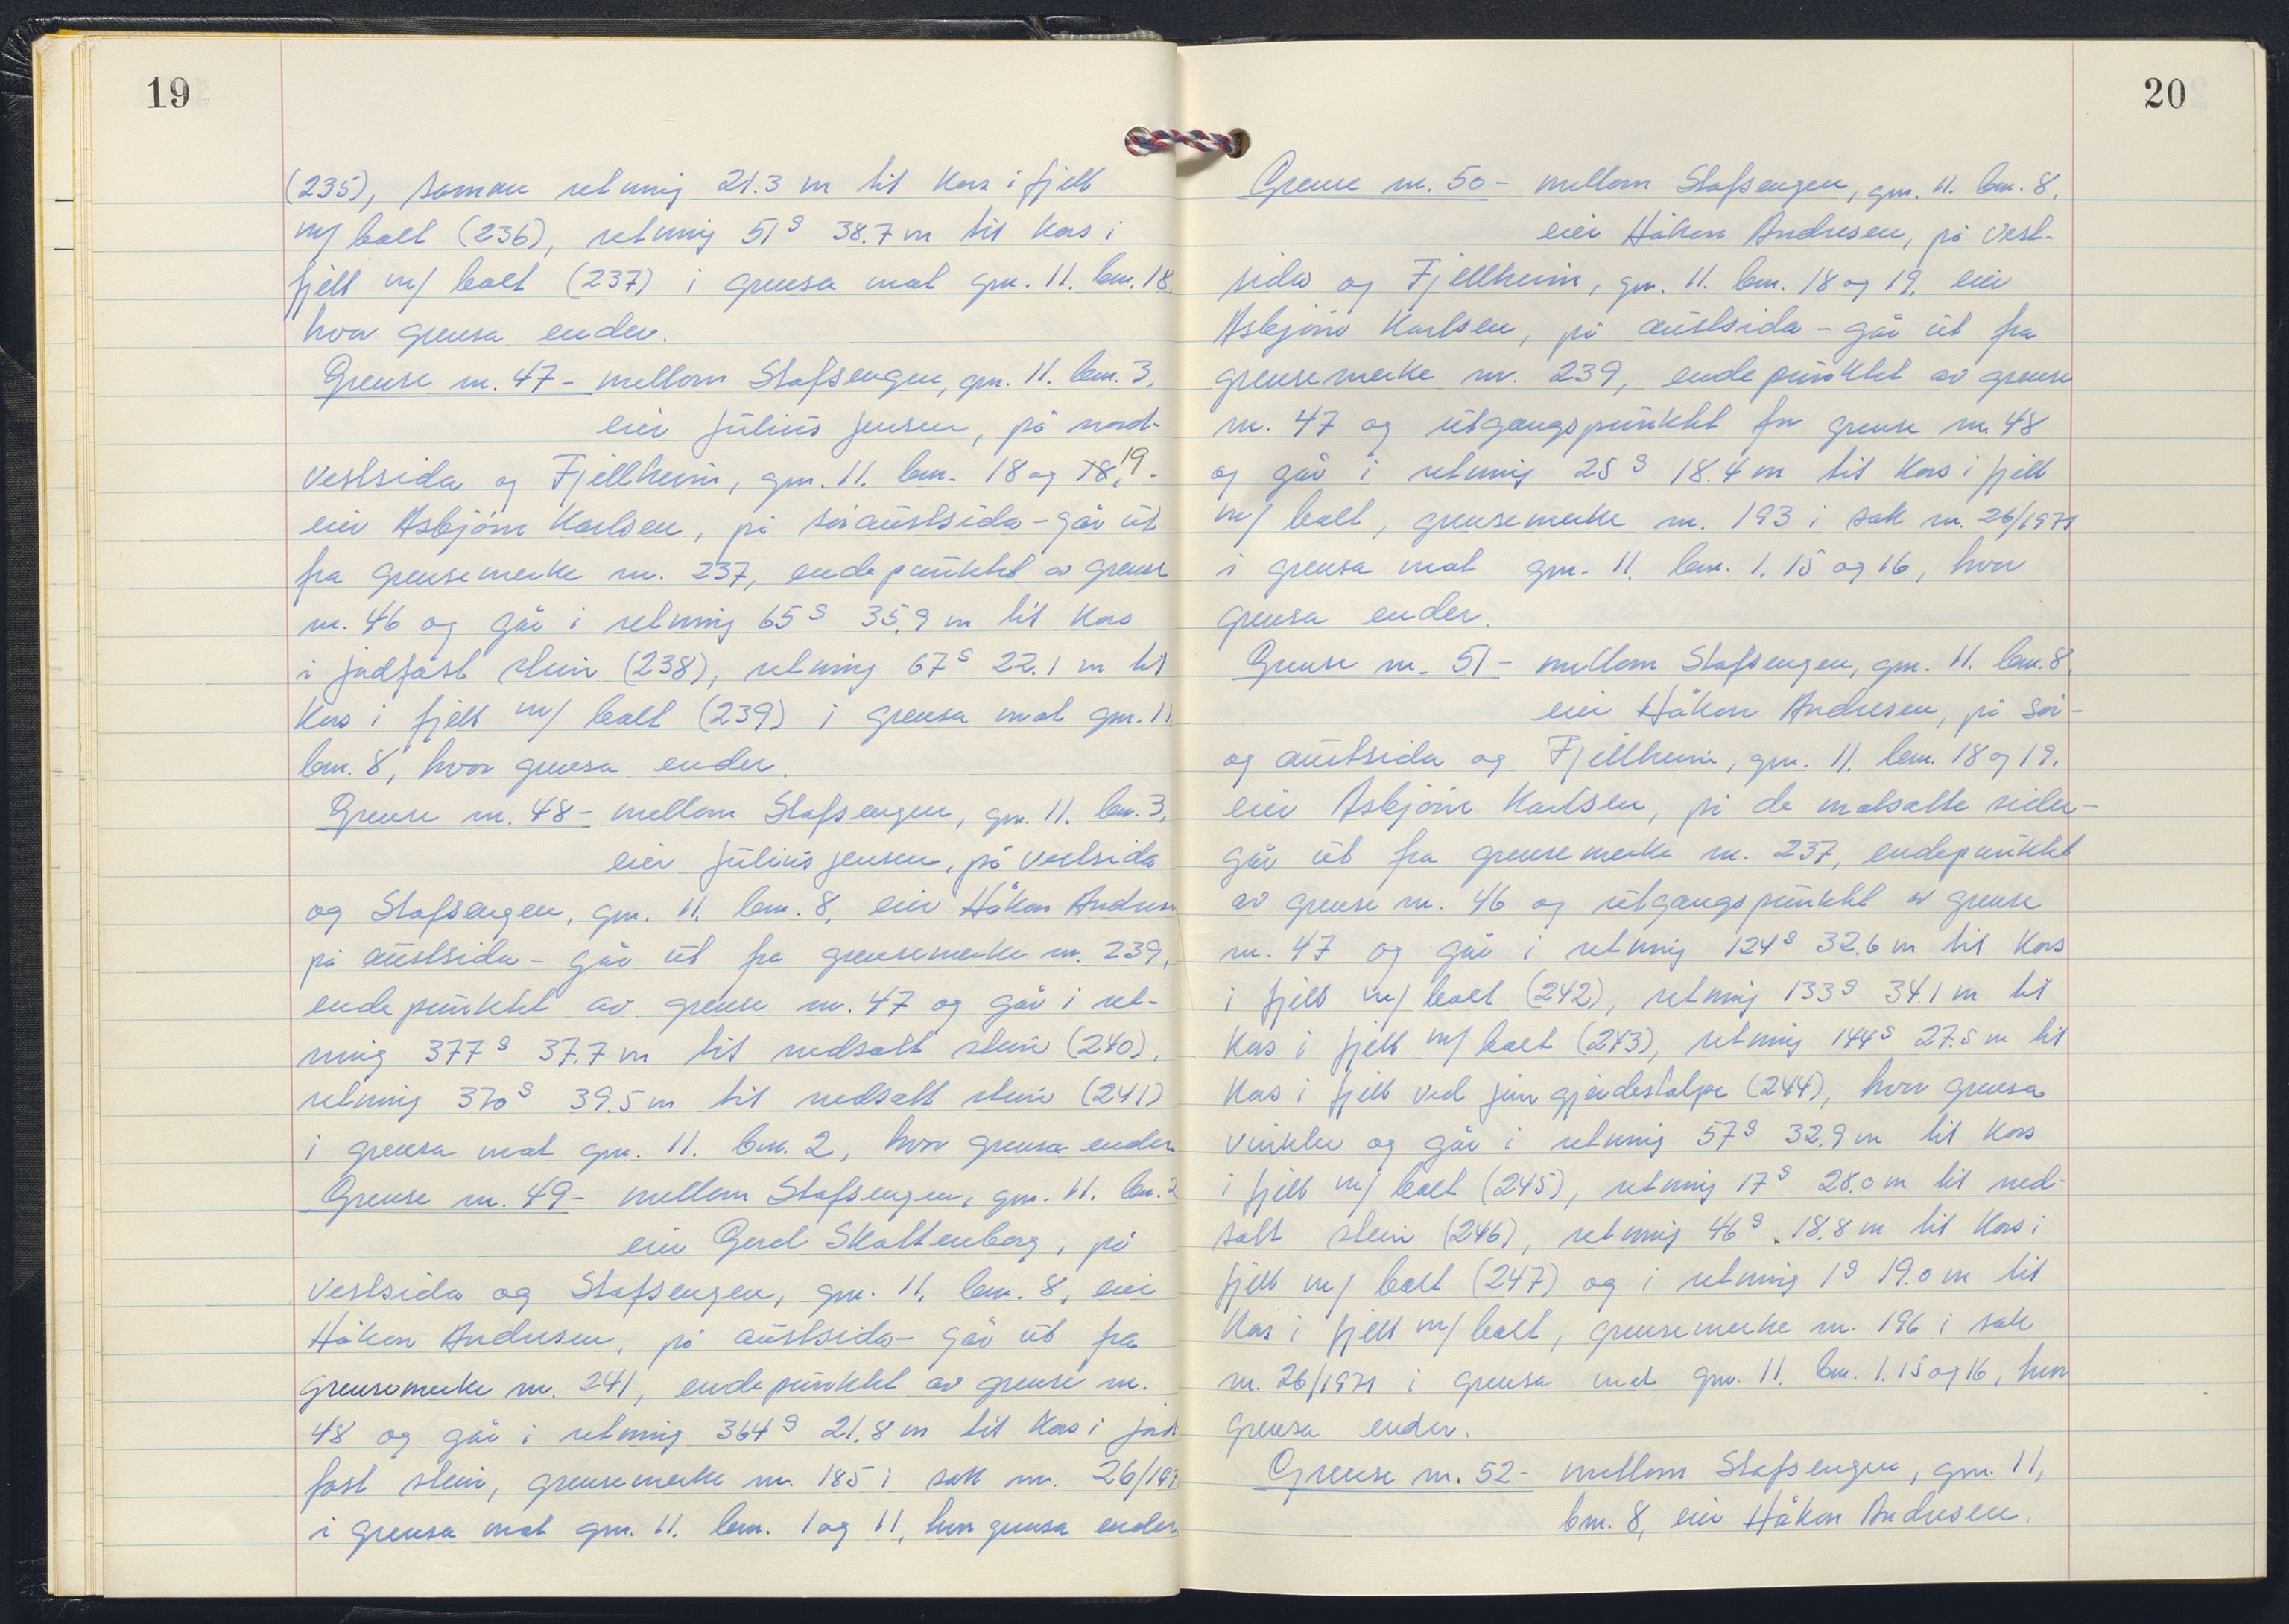 19
(235), samme retning 21.3 m til kors i fjell
m/ bolt (236), retning 51ᵍ 38.7 m til kors i
fjell m/ bolt (237) i grensa mot gnr. 11. bnr. 18.
hvor grensa ender.
Grense nr. 47 - mellom Stafsengen, gnr. 11. bnr. 3,
eier Julius Jensen, på nord-
vestsida og Fjellheim, gnr. 11. bnr. 18 og 18, 19.
eier Asbjörn Karlsen, på söraustsida - går ut
fra grensemerke nr. 237, endepunktet av grense
nr. 46 og går i retning 65ᵍ 35.9 m til kors
i jordfast stein (238), retning 67ᵍ 22.1 m til
kors i fjell m/ bolt (239) i grensa mot gnr. 11
bnr. 8, hvor grensa ender.
Grense nr. 48 - mellom Stafsengen, gnr. 11. bnr. 3,
eier Julius Jensen, på vestsida
og Stafsengen, gnr. 11. bnr. 8, eier Håkon Andresen
på austsida - går ut fra grensemerke nr. 239,
endepunktet av grense nr. 47 og går i ret-
ning 377ᵍ 37.7 m til nedsatt stein (240),
retning 370ᵍ 39.5 m til nedsatt stein (241)
i grensa mot gnr. 11. bnr. 2, hvor grensa ender.
Grense nr. 49 - mellom Stafsengen, gnr. 11. bnr. 2
eier Gerd Skottenborg, på
vestsida og Stafsengen, gnr. 11. bnr. 8, eier
Håkon Andresen, på austsida - går ut fra
grensemerke nr. 241, endepunktet av grense nr.
48 og går i retning 364ᵍ 21.8 m til kors i jord
fast stein, grensemerke nr. 185 i sak nr. 26/1971
i grensa mot gnr. 11. bnr. 1 og 11, hvor grensa ender.
20
Grense nr. 50 - mellom Stafsengen, gnr. 11. bnr. 8,
eier Håkon Andresen, på vest-
sida og Fjellheim, gnr. 11. bnr. 18 og 19, eier
Asbjörn Karlsen, på austsida - går ut fra
grensemerke nr. 239, endepunktet av grense
nr. 47 og utgangspunktet for grense nr. 48
og går i retning 25ᵍ 18.4 m til kors i fjell
m/ bolt, grensemerke nr. 193 i sak nr. 26/1971
i grensa mot gnr. 11. bnr. 1. 15 og 16, hvor
grensa ender.
Grense nr. 51 - mellom Stafsengen, gnr. 11. bnr. 8,
eier Håkon Andresen, på sör-
og austsida og Fjellheim, gnr. 11. bnr. 18 og 19.
eier Asbjörn Karlsen, på de motsatte sider -
går ut fra grensemerke nr. 237, endepunktet
av grense nr. 46 og utgangspunktet av grense
nr. 47 og går i retning 124ᵍ 32.6 m til kors
i fjell m/ bolt (242), retning 133ᵍ 34.1 m til
kors i fjell m/ bolt (243), retning 144ᵍ 27.5 m til
kors i fjell ved jern gjerdestolpe (244), hvor grensa
vinkler og går i retning 57ᵍ 32.9 m til kors
i fjell m/ bolt (245), retning 17ᵍ 28.0 m til ned-
satt stein (246), retning 46ᵍ 18.8 m til kors i
fjell m/ bolt (247) og i retning 1ᵍ 19.0 m til
kors i fjell m/ bolt, grensemerke nr. 196 i sak
nr. 26/1971 i grensa mot gnr. 11. bnr. 1. 15 og 16, hvor
grensa ender.
Grense nr. 52 - mellom Stafsengen, gnr. 11,
bnr. 8, eier Håkon Andresen.